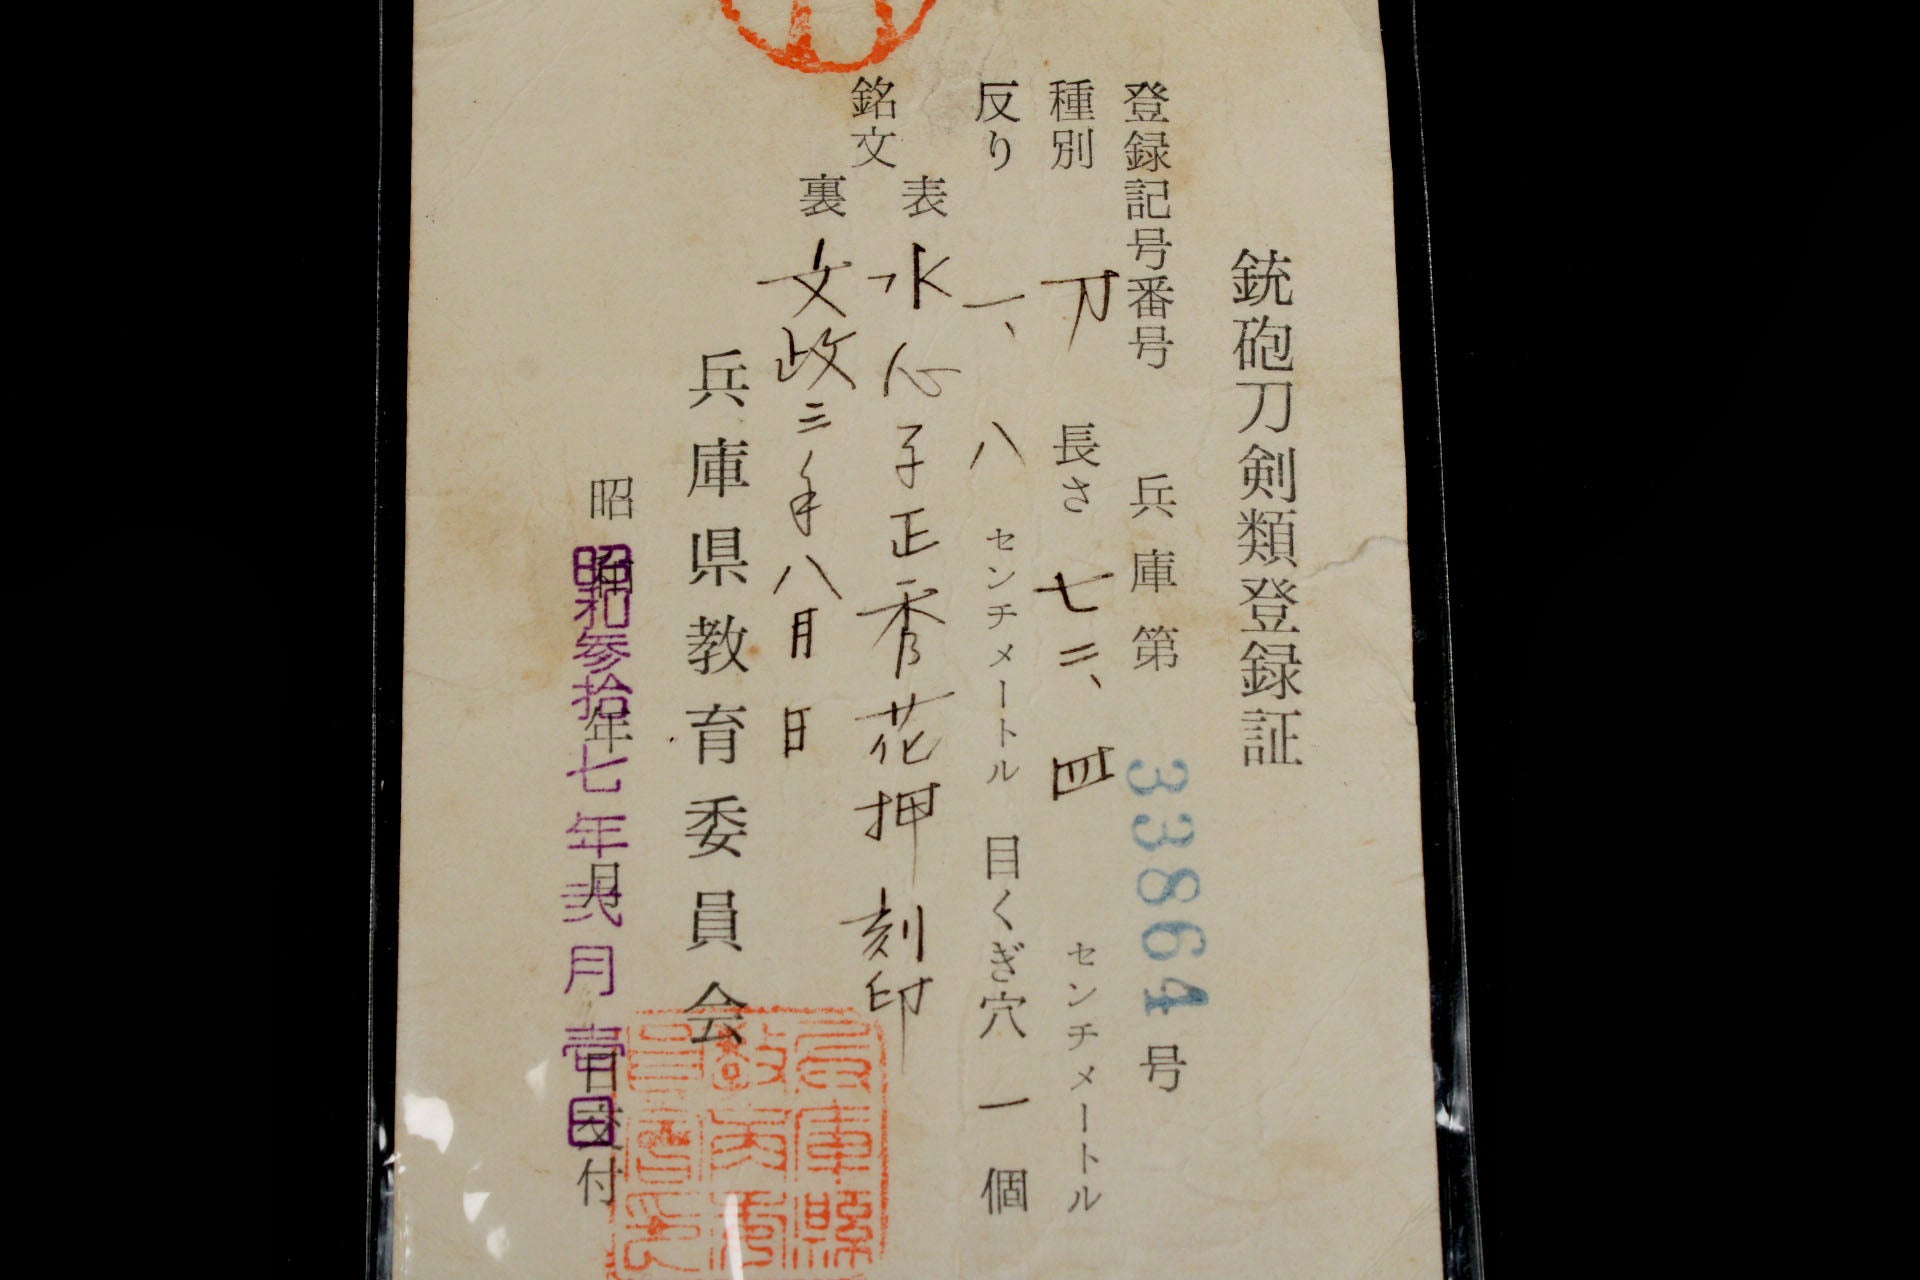 銃砲刀剣類登録証
登録記号番号 兵庫第 33864号
種別 刀 長さ 七二、四 センチメートル
反り 一、八 センチメートル 目くぎ穴 一 個
銘文 表 水心子正秀花押刻印
裏 文政三年八月日
兵庫県教育委員会
昭和 年 月 日交付
昭和参拾七年弐月壱日